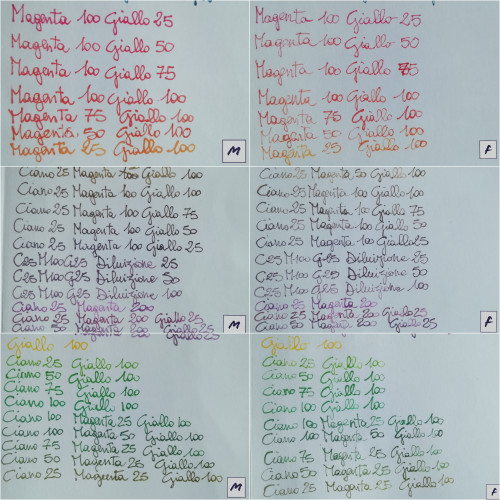 Magenta 100 Giallo 25
Magenta 100 Giallo 50
Magenta 100 Giallo 75
Magenta 100 Giallo 100
Magenta 75 Giallo 100
Magenta 50 Giallo 100
Magenta 25 Giallo 100
M
Magenta 100 Giallo 25
Magenta 100 Giallo 50
Magenta 100 Giallo 75
Magenta 100 Giallo 100
Magenta 75 Giallo 100
Magenta 50 Giallo 100
Magenta 25 Giallo 100
F
Ciano 25 Magenta 100 Giallo 100
Ciano 25 Magenta 100 Giallo 100
Ciano 25 Magenta 100 Giallo 75
Ciano 25 Magenta 100 Giallo 50
Ciano 25 Magenta 100 Giallo 25
C25 M100 G25 Diluizione 25
C25 M100 G25 Diluizione 50
C25 M100 G25 Diluizione 100
Ciano 25 Magenta 200
Ciano 25 Magenta 200 Giallo 25
Ciano 50 Magenta 200 Giallo 25
M
Ciano 25 Magenta 50 Giallo 100
Ciano 25 Magenta 100 Giallo 100
Ciano 25 Magenta 100 Giallo 75
Ciano 25 Magenta 100 Giallo 50
Ciano 25 Magenta 100 Giallo 25
C25 M100 G25 Diluizione 25
C25 M100 G25 Diluizione 50
C25 M100 G25 Diluizione 100
Ciano 25 Magenta 200
Ciano 25 Magenta 200 Giallo 25
Ciano 50 Magenta 200 Giallo 25
F
Giallo 100
Ciano 25 Giallo 100
Ciano 50 Giallo 100
Ciano 75 Giallo 100
Ciano 100 Giallo 100
Ciano 100 Magenta 25 Giallo 100
Ciano 100 Magenta 50 Giallo 100
Ciano 75 Magenta 25 Giallo 100
Ciano 50 Magenta 25 Giallo 100
Ciano 25 Magenta 25 Giallo 100
M
Giallo 100
Ciano 25 Giallo 100
Ciano 50 Giallo 100
Ciano 75 Giallo 100
Ciano 100 Giallo 100
Ciano 100 Magenta 25 Giallo 100
Ciano 100 Magenta 50 Giallo 100
Ciano 75 Magenta 25 Giallo 100
Ciano 50 Magenta 25 Giallo 100
Ciano 25 Magenta 25 Giallo 100
F